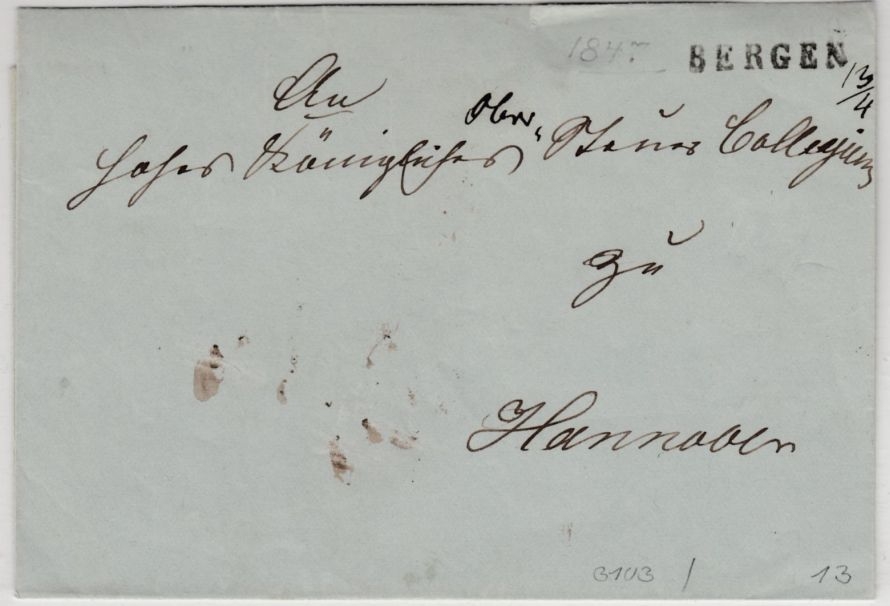 1847 BERGEN
13/4
An
Ober
Hohes Königliches Steuer Collegium
zu
Hannover
3103 / 13